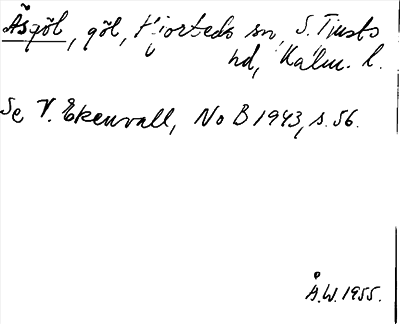 Åsgöl, göl, Hjorteds sn, S. Tjusts
hd, Kalm. l.
Se V. Ekenvall, NoB 1943, s. 56.
Å.W. 1955.